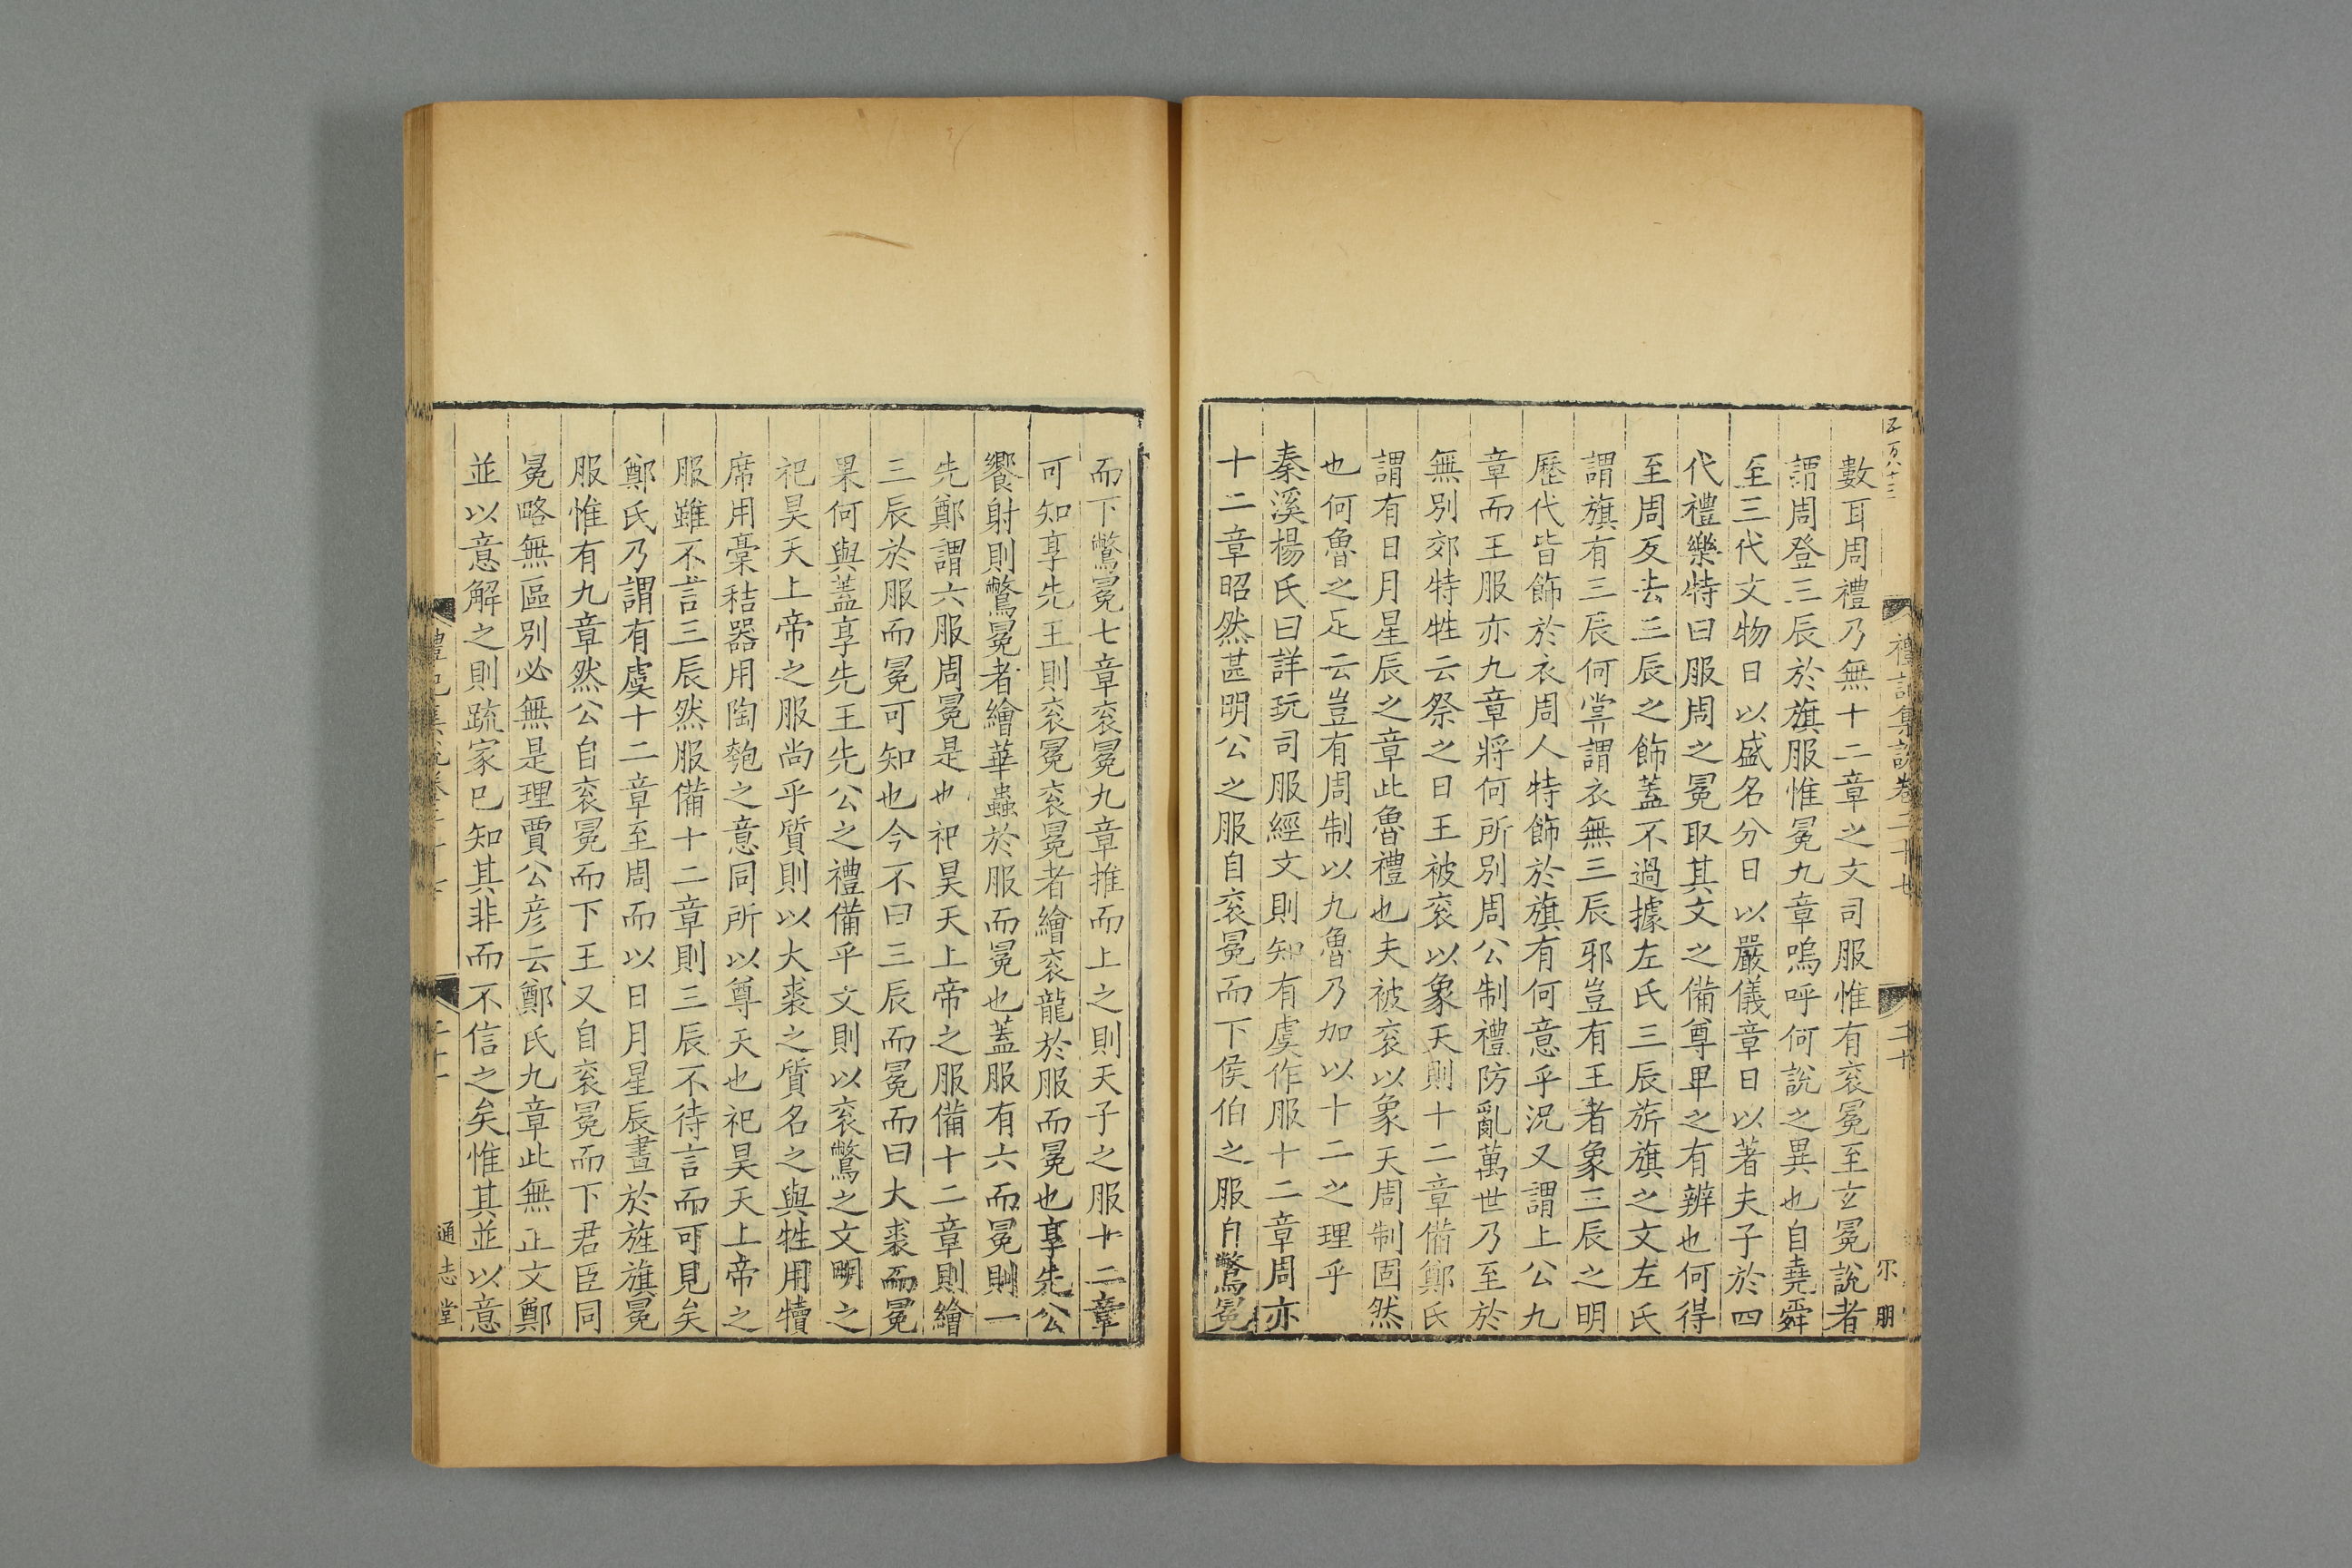 數耳周禮乃無十二章之文司服惟有袞冕至玄冕說者
謂周登三辰於旗服惟冕九章嗚呼何說之異也自堯舜
至三代文物日以盛名分日以嚴儀章日以著夫子於四
代禮樂特曰服周之冕取其文之備尊卑之有辨也何得
至周反去三辰之飾蓋不過據左氏三辰旂旗之文左氏
謂旗有三辰何嘗謂衣無三辰邪豈有王者象三辰之明
歷代皆飾於衣周人特飾於旗有何意乎況又謂上公九
章而王服亦九章將何所別周公制禮防亂萬世乃至於
無別郊特牲云祭之日王被袞以象天則十二章備鄭氏
謂有日月星辰之章此魯禮也夫被袞以象天周制固然
也何魯之足云豈有周制以九魯乃加以十二之理乎
秦溪楊氏曰詳玩司服經文則知有虞作服十二章周亦
十二章昭然甚明公之服自袞冕而下侯伯之服自驚冕
禮記集說卷二十七
二十
而下鷩冕七章袞冕九章推而上之則天子之服十二章
可知享先王則袞冕袞冕者繪袞龍於服而冕也享先公
饗射則鷩冕者繪華蟲於服而冕也蓋服有六而冕則一
先鄭謂六服周冕是也祀昊天上帝之服備十二章則繪
三辰於服而冕可知也今不曰三辰而冕而曰大裘而冕
果何與蓋享先王先公之禮備乎文則以袞鷩之文明之
祀昊天上帝之服尚乎質則以大裘之質名之與牲用犢
席用藁秸器用陶匏之意同所以尊天也祀昊天上帝之
服雖不言三辰然服備十二章則三辰不待言而可見矣
鄭氏乃謂有虞十二章至周而以日月星辰畫於旌旗冕
服惟有九章然公自袞冕而下王又自袞冕而下君臣同
冕略無區別必無是理賈公彥云鄭氏九章此無正文鄭
並以意解之則疏家已知其非而不信之矣惟其並以意
通志堂